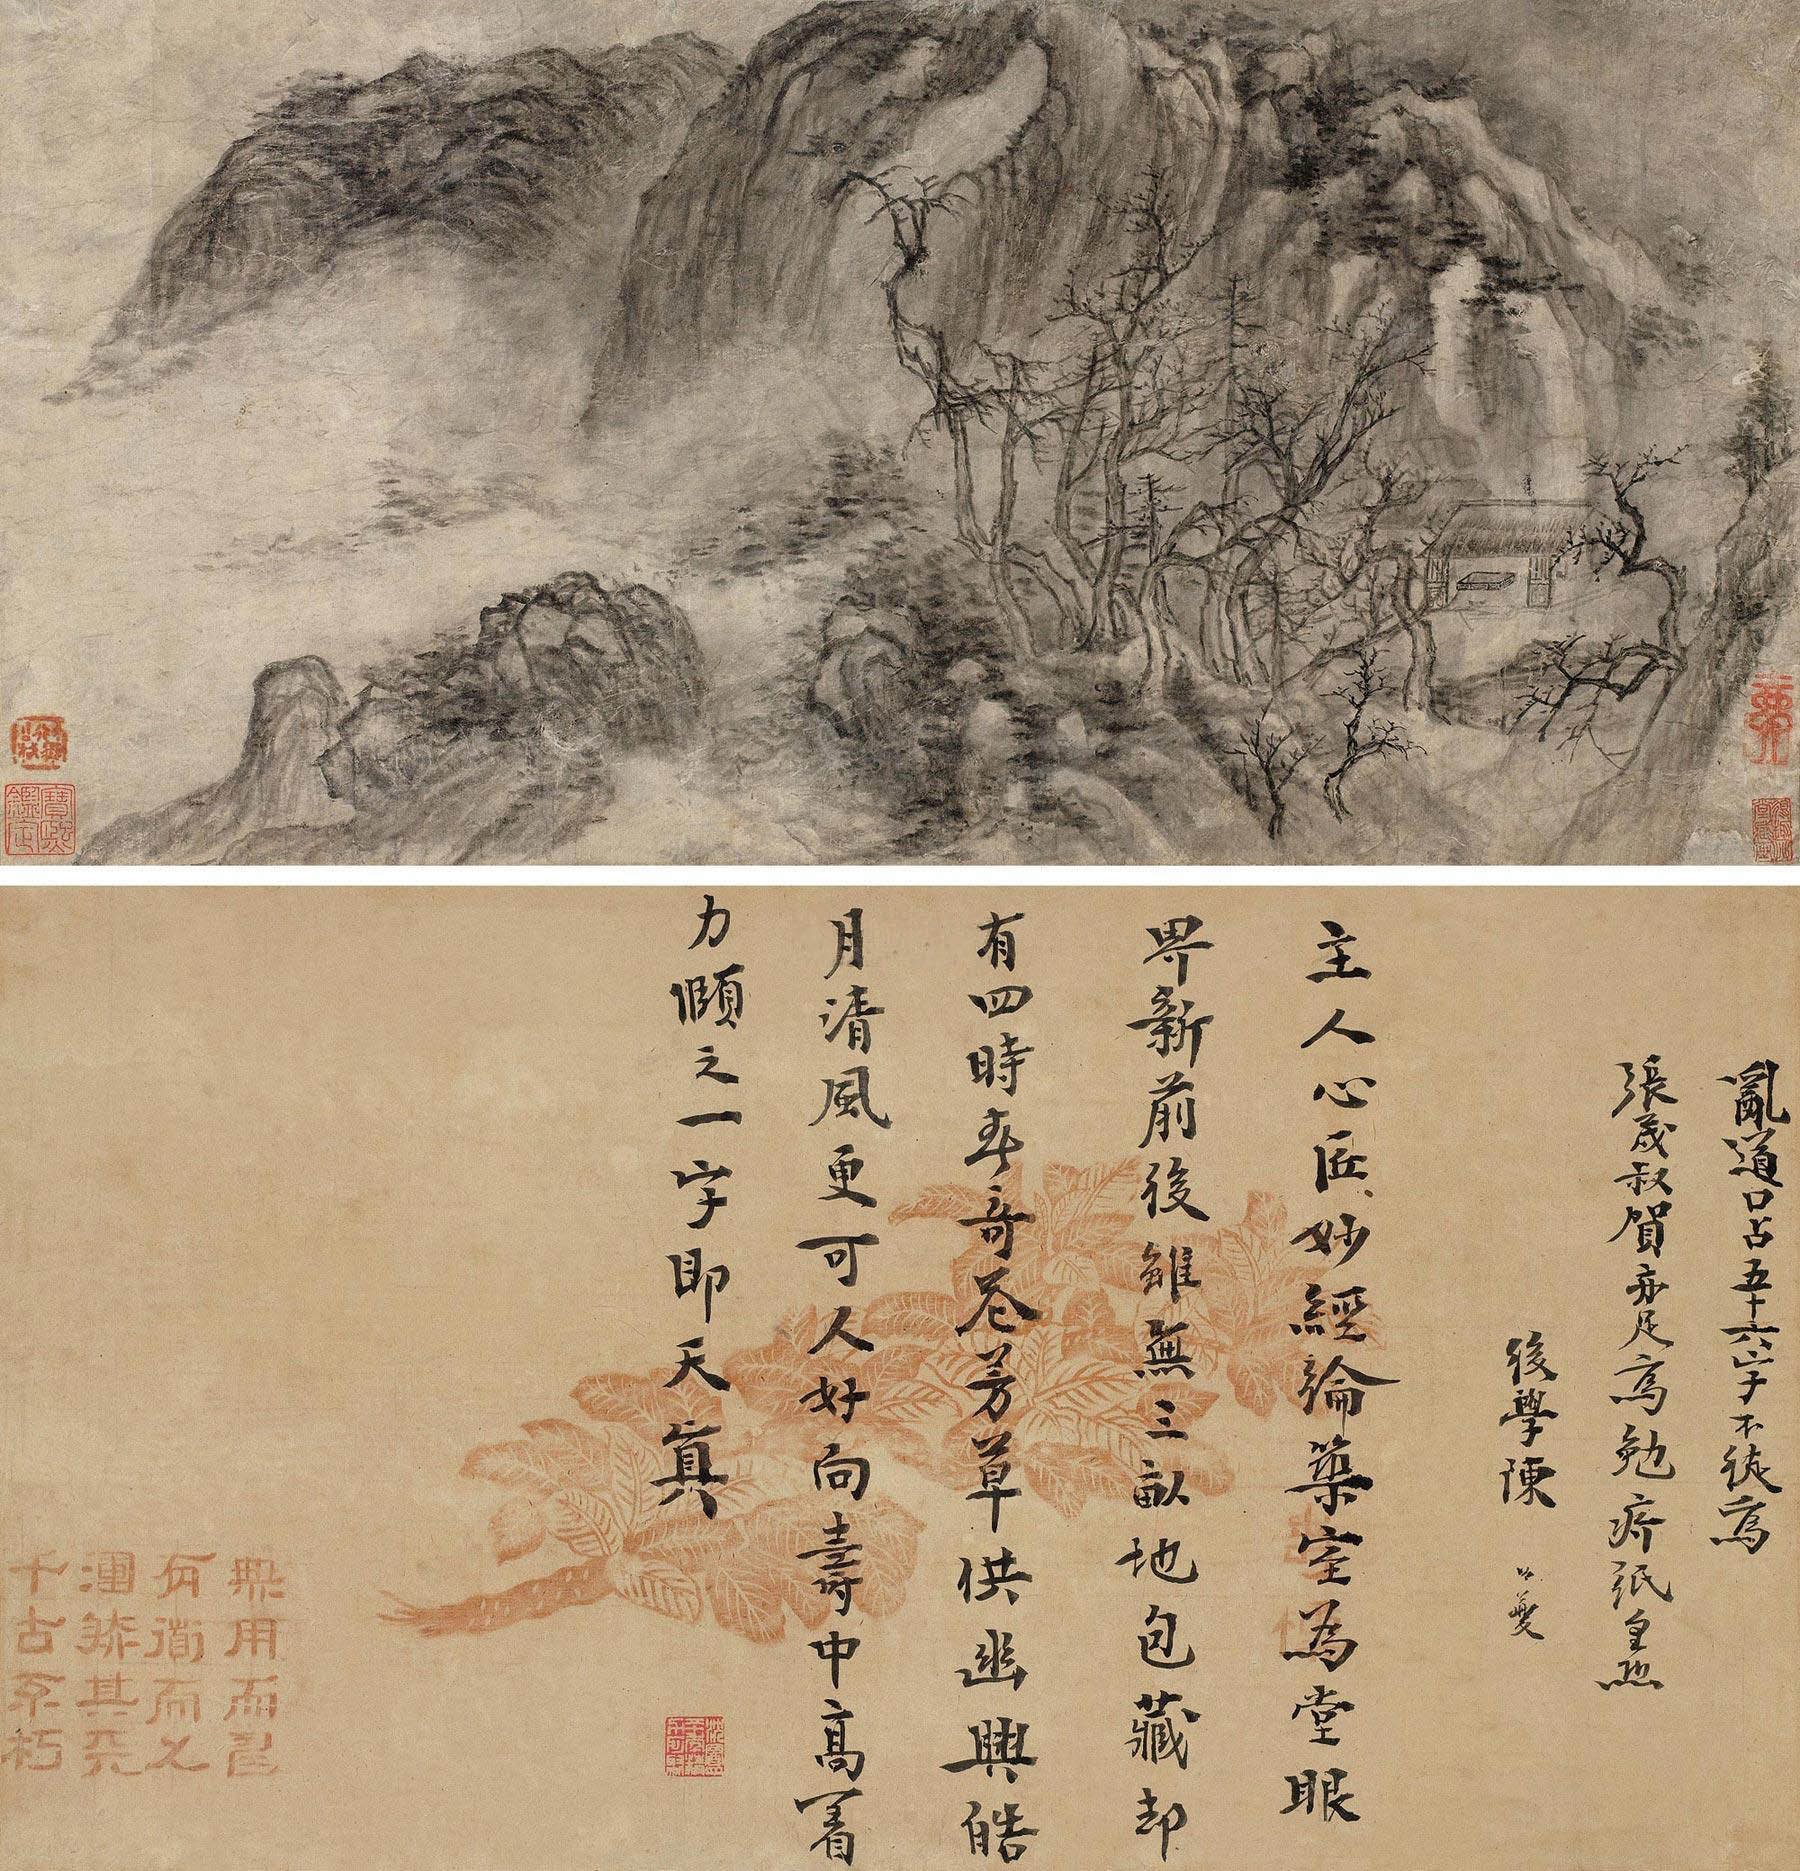 亂道口占五十六字不徒為
張叔賀亦足為勉疥紙皇恐
後學陳
主人心匠妙經論築室為堂眼
界新前後雖無三畝地包藏却
有四時春奇花芳草供幽興皓
月清風更可人好向壽中高着
力頤之一字即天真
無用而
有道而
其
千古不朽
寶熙鑑定